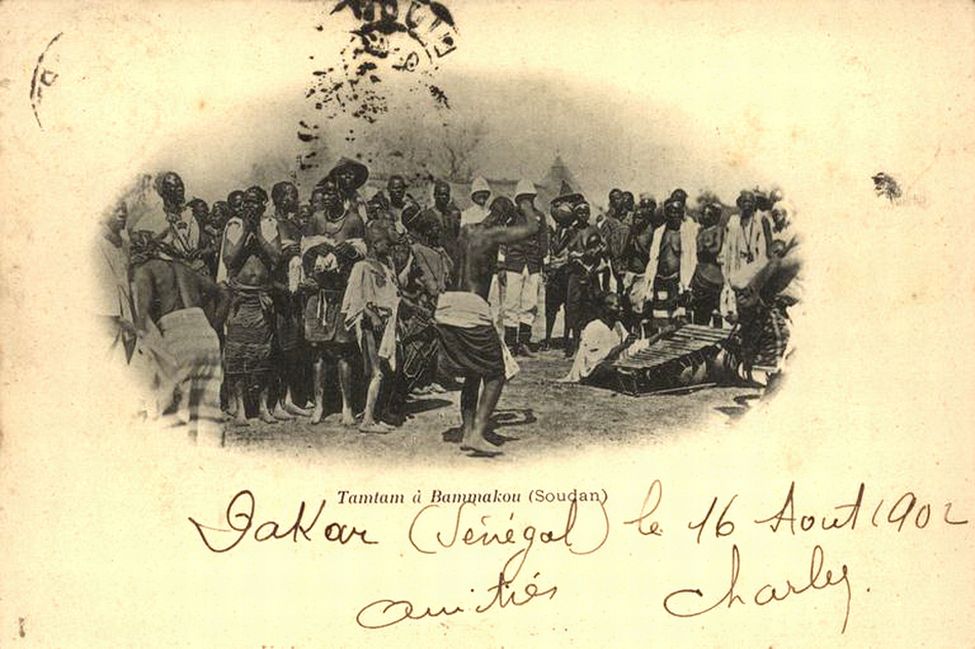 Tamtam à Bammakou (Soudan)
Dakar (Sénégal) le 16 Aout 1902
amitiés Charley.